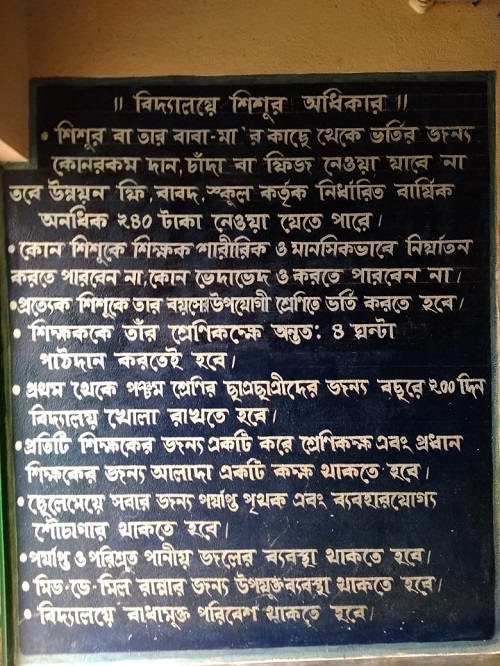 ॥ বিদ্যালয়ে শিশুর অধিকার ॥
• শিশুর বা তার বাবা-মা'র কাছে থেকে ভর্তির জন্য
কোনরকম দান, চাঁদা বা ফিজ নেওয়া যাবে না
তবে উন্নয়ন ফি, বাবদ, স্কুল কর্তৃক নির্ধারিত বার্ষিক
অনধিক ২৪০ টাকা নেওয়া যেতে পারে।
• কোন শিশুকে শিক্ষক শারীরিক ও মানসিকভাবে নির্যাতন
করতে পারবেন না, কোন ভেদাভেদ ও করতে পারবেন না।
• প্রত্যেক শিশুকে তার বয়সের উপযোগী শ্রেণিতে ভর্তি করতে হবে।
• শিক্ষককে তাঁর শ্রেণিকক্ষে অন্তত: ৪ ঘন্টা
পাঠদান করতেই হবে।
• প্রথম থেকে পঞ্চম শ্রেণির ছাত্রছাত্রীদের জন্য বছরে ২০০ দিন
বিদ্যালয় খোলা রাখতে হবে।
• প্রতিটি শিক্ষকের জন্য একটি করে শ্রেণিকক্ষ এবং প্রধান
শিক্ষকের জন্য আলাদা একটি কক্ষ থাকতে হবে।
• ছেলেমেয়ে সবার জন্য পর্যাপ্ত পৃথক এবং ব্যবহারযোগ্য
শৌচাগার থাকতে হবে।
• পর্যাপ্ত ও পরিশ্রুত পানীয় জলের ব্যবস্থা থাকতে হবে।
• মিড-ডে-মিল রান্নার জন্য উপযুক্ত ব্যবস্থা থাকতে হবে।
• বিদ্যালয়ে বাধামুক্ত পরিবেশ থাকতে হবে।